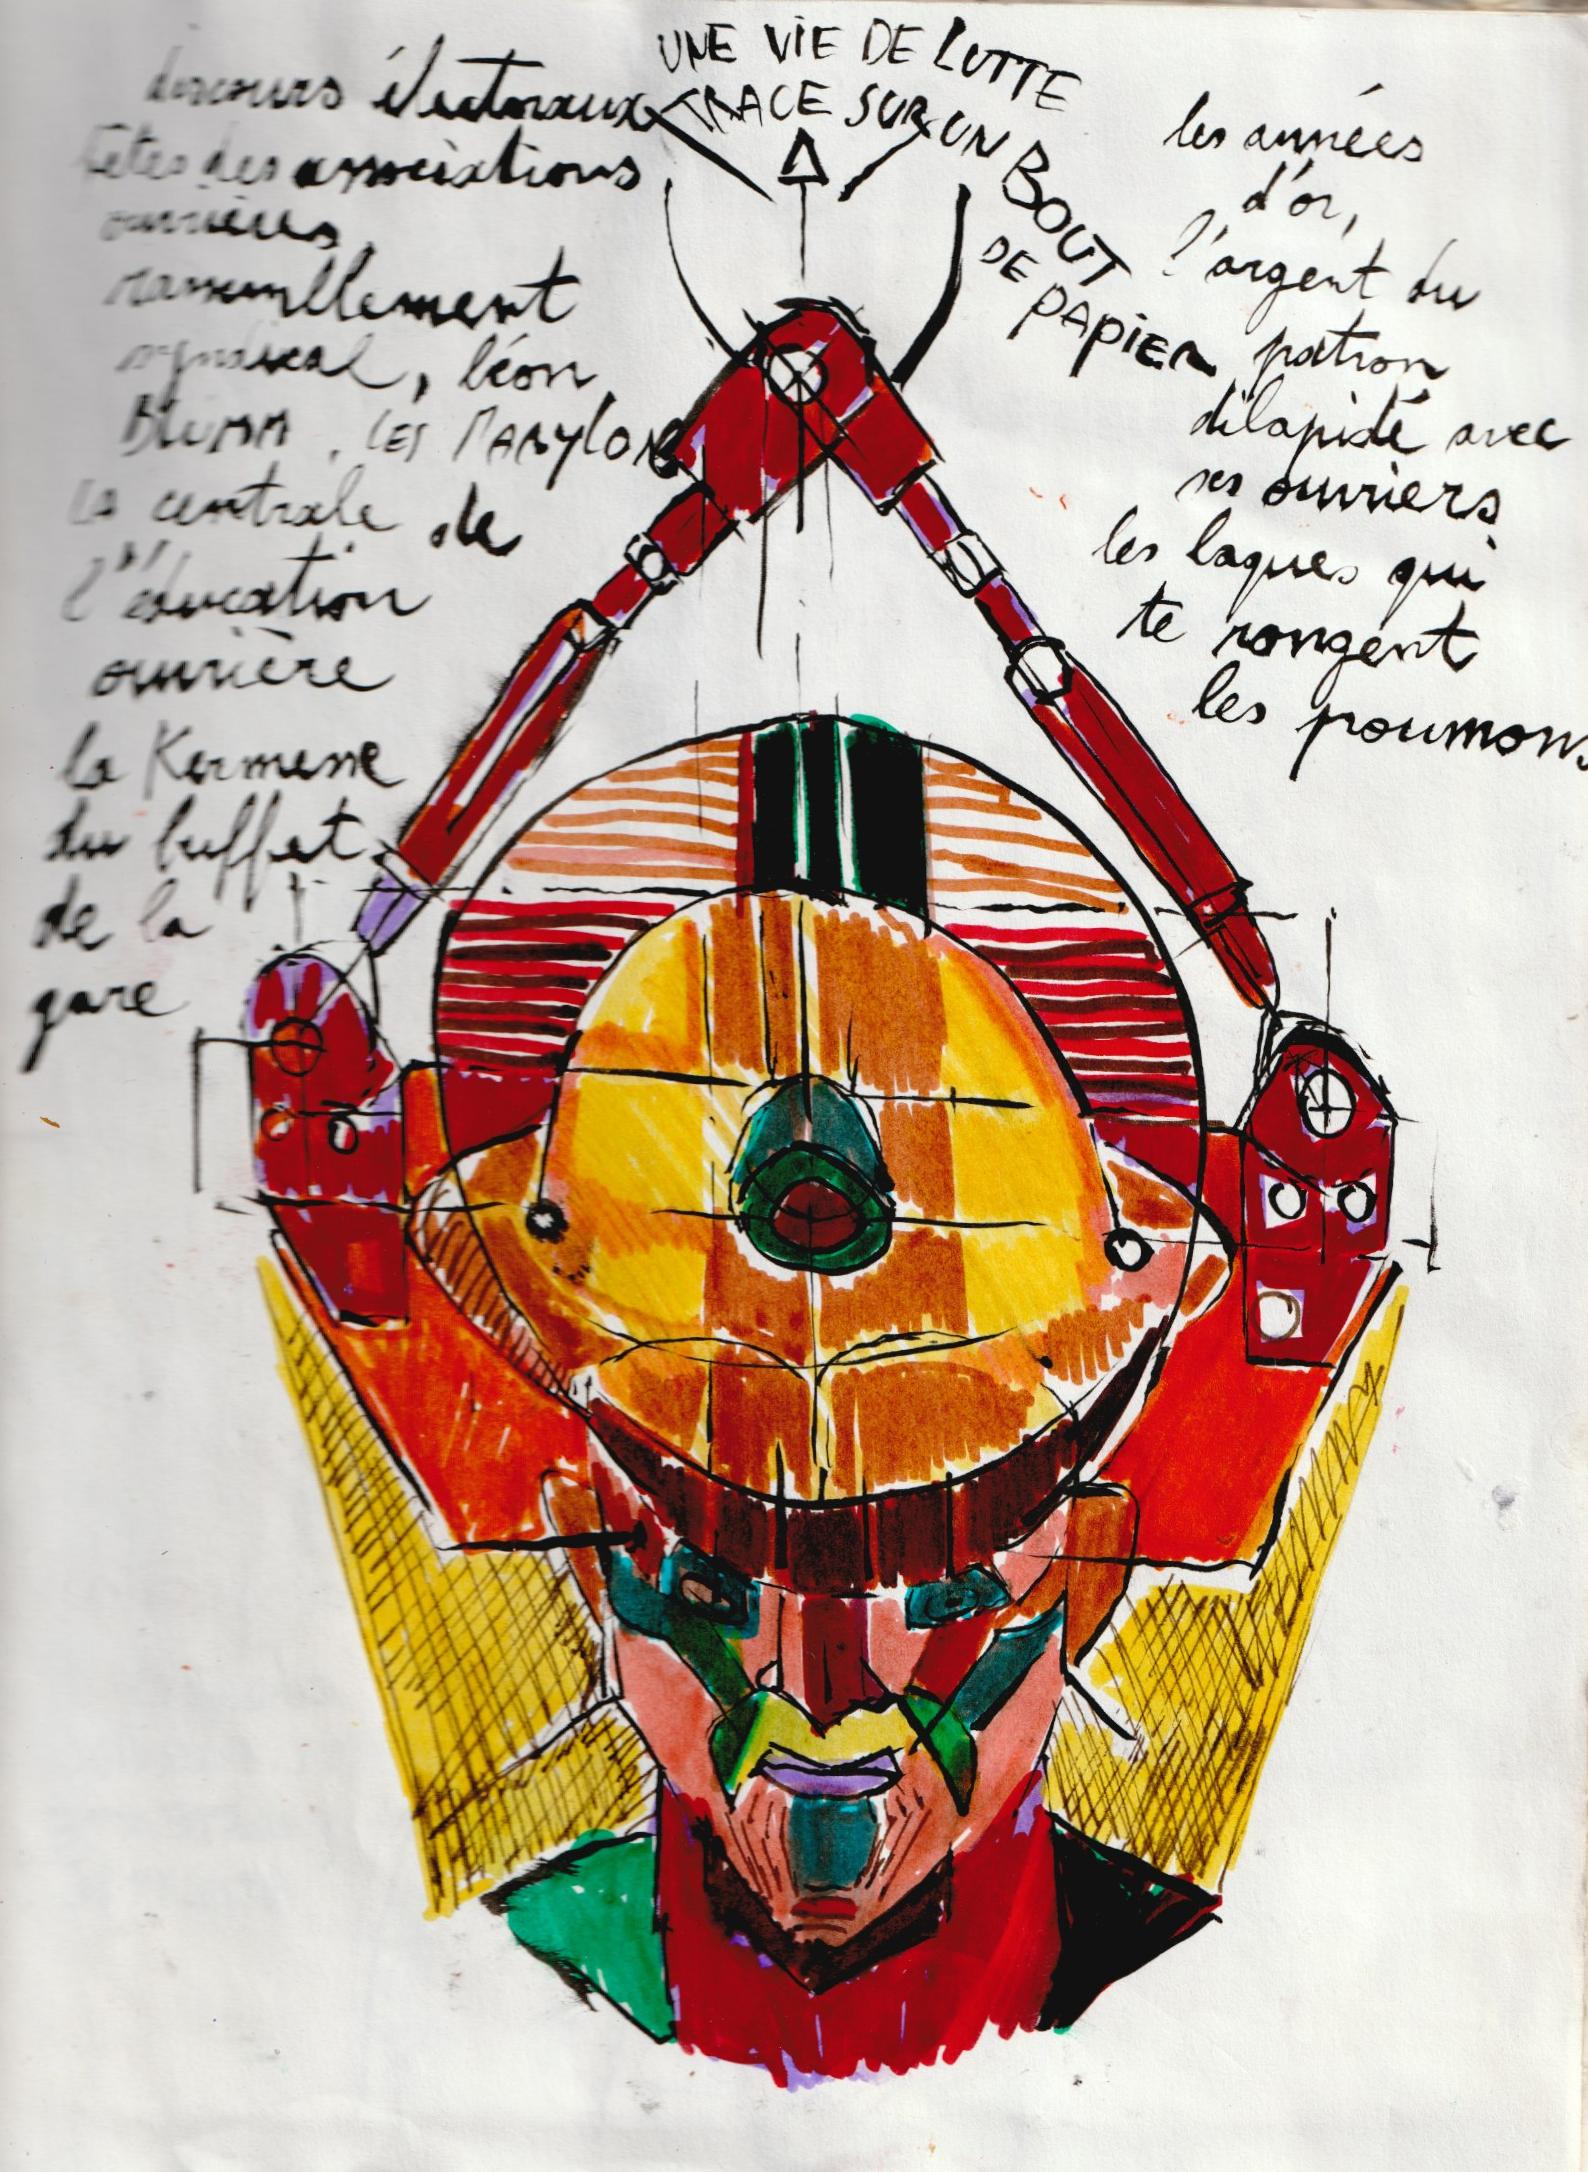 UNE VIE DE LUTTE
TRACE SUR UN BOUT
DE PAPIER
discours électoraux
fêtes des associations
ouvrières,
rassemblement
syndical, léon
BLUMM, LES MARYLON
LA centrale de
l'éducation
ouvrière
la Kermesse
du buffet
de la
gare
les années
d'or,
l'argent du
patron
dilapidé avec
ses ouvriers
les laques qui
te rongent
les poumons